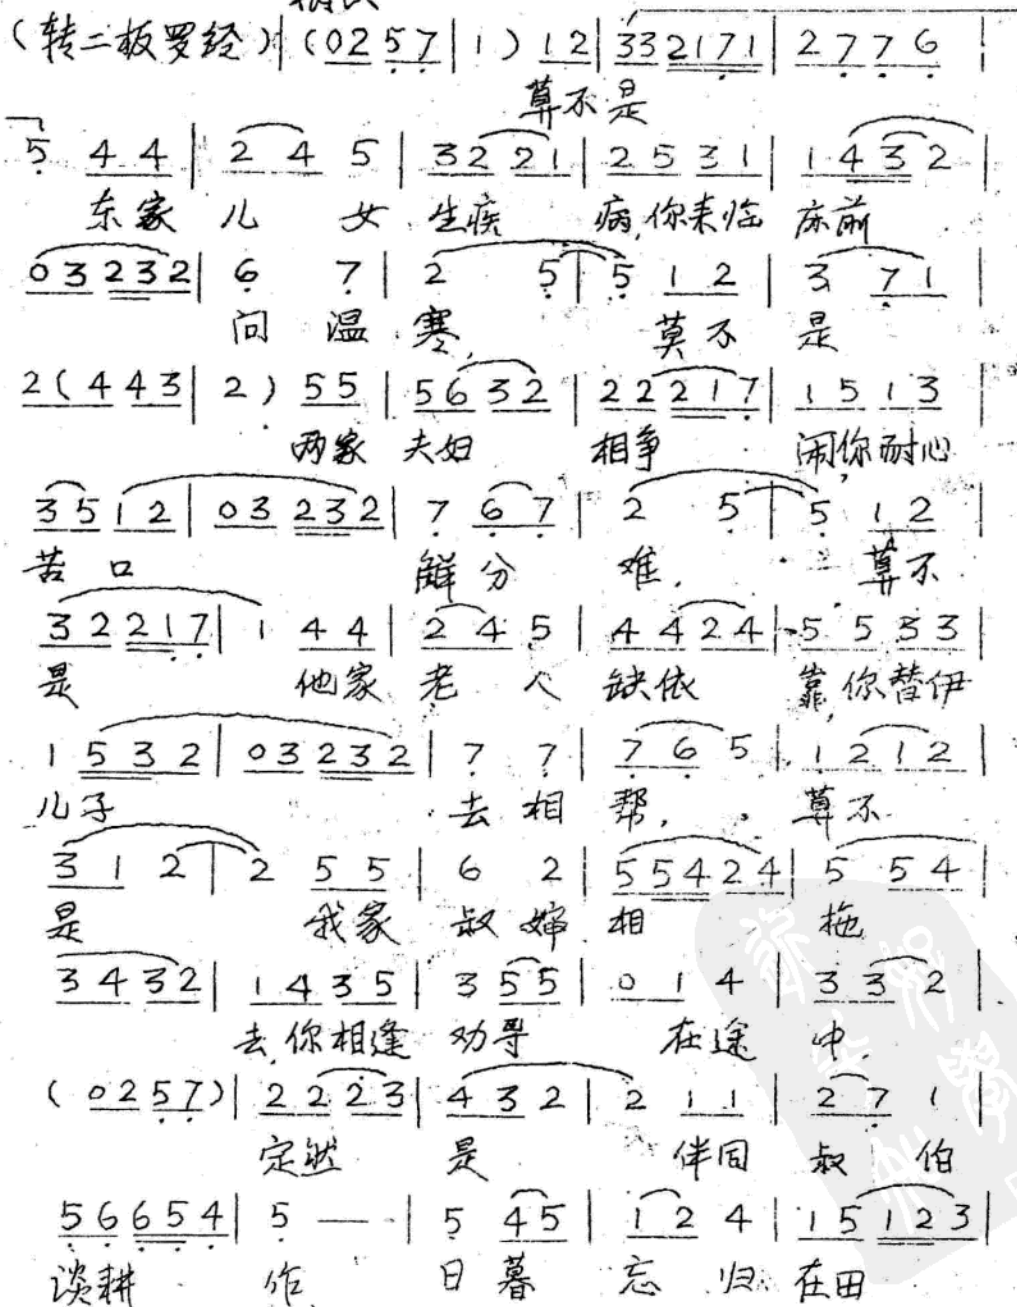 (转二板罗经) | (0 2 5 7 | 1) 1 2 | 3 3 2 1 7 1 | 2 7 7 6 |
算不是
5 4 4 | 2 4 5 | 3 2 2 1 | 2 5 3 1 | 1 4 3 2 |
东家儿女生疾病,你来临床前
0 3 2 3 2 | 6 7 | 2 5 | 5 1 2 | 3 7 1 |
问温寒,莫不是
2 (4 4 3 | 2) 5 5 | 5 6 3 2 | 2 2 2 1 7 | 1 5 1 3
两家夫妇相争闹,你耐心
3 5 1 2 | 0 3 2 3 2 | 7 6 7 | 2 5 | 5 1 2
苦口解分难.算不
3 2 2 1 7 | 1 4 4 | 2 4 5 | 4 4 2 4 | 5 5 3 3 |
是他家老人缺依靠,你替伊
1 5 3 2 | 0 3 2 3 2 | 7 7 | 7 6 5 | 1 2 1 2 |
儿子去相帮.算不
3 1 2 | 2 5 5 | 6 2 | 5 5 4 2 4 | 5 5 4 |
是我家叔婶相拖
3 4 3 2 | 1 4 3 5 | 3 5 5 | 0 1 4 | 3 3 2 |
去,你相逢劝导在途中.
(0 2 5 7) | 2 2 2 3 | 4 3 2 | 2 1 1 | 2 7 1 |
定然是伴同叔伯
5 6 6 5 4 | 5 — | 5 4 5 | 1 2 4 | 1 5 1 2 3 |
谈耕作,日暮忘归在田